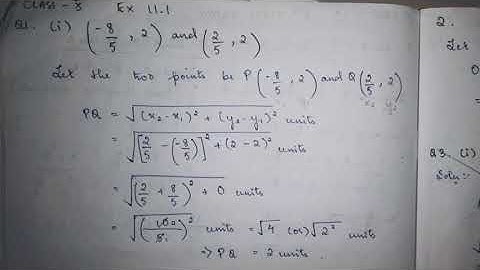 CLASS - 3 Ex 11.1
Q1. (i) (-8/5, 2) and (2/5, 2)
Let the two points be P(-8/5, 2) and Q(2/5, 2)
x₂ y₂
PQ = √((x₂-x₁)² + (y₂-y₁)²) units
= √([2/5 - (-8/5)]² + (2-2)²) units
= √((2/5 + 8/5)² + 0) units
= √((10/5)²) units = √4 (or) √2² units
⇒ PQ = 2 units.
2.
Let
Q3. (i)
Soln:-